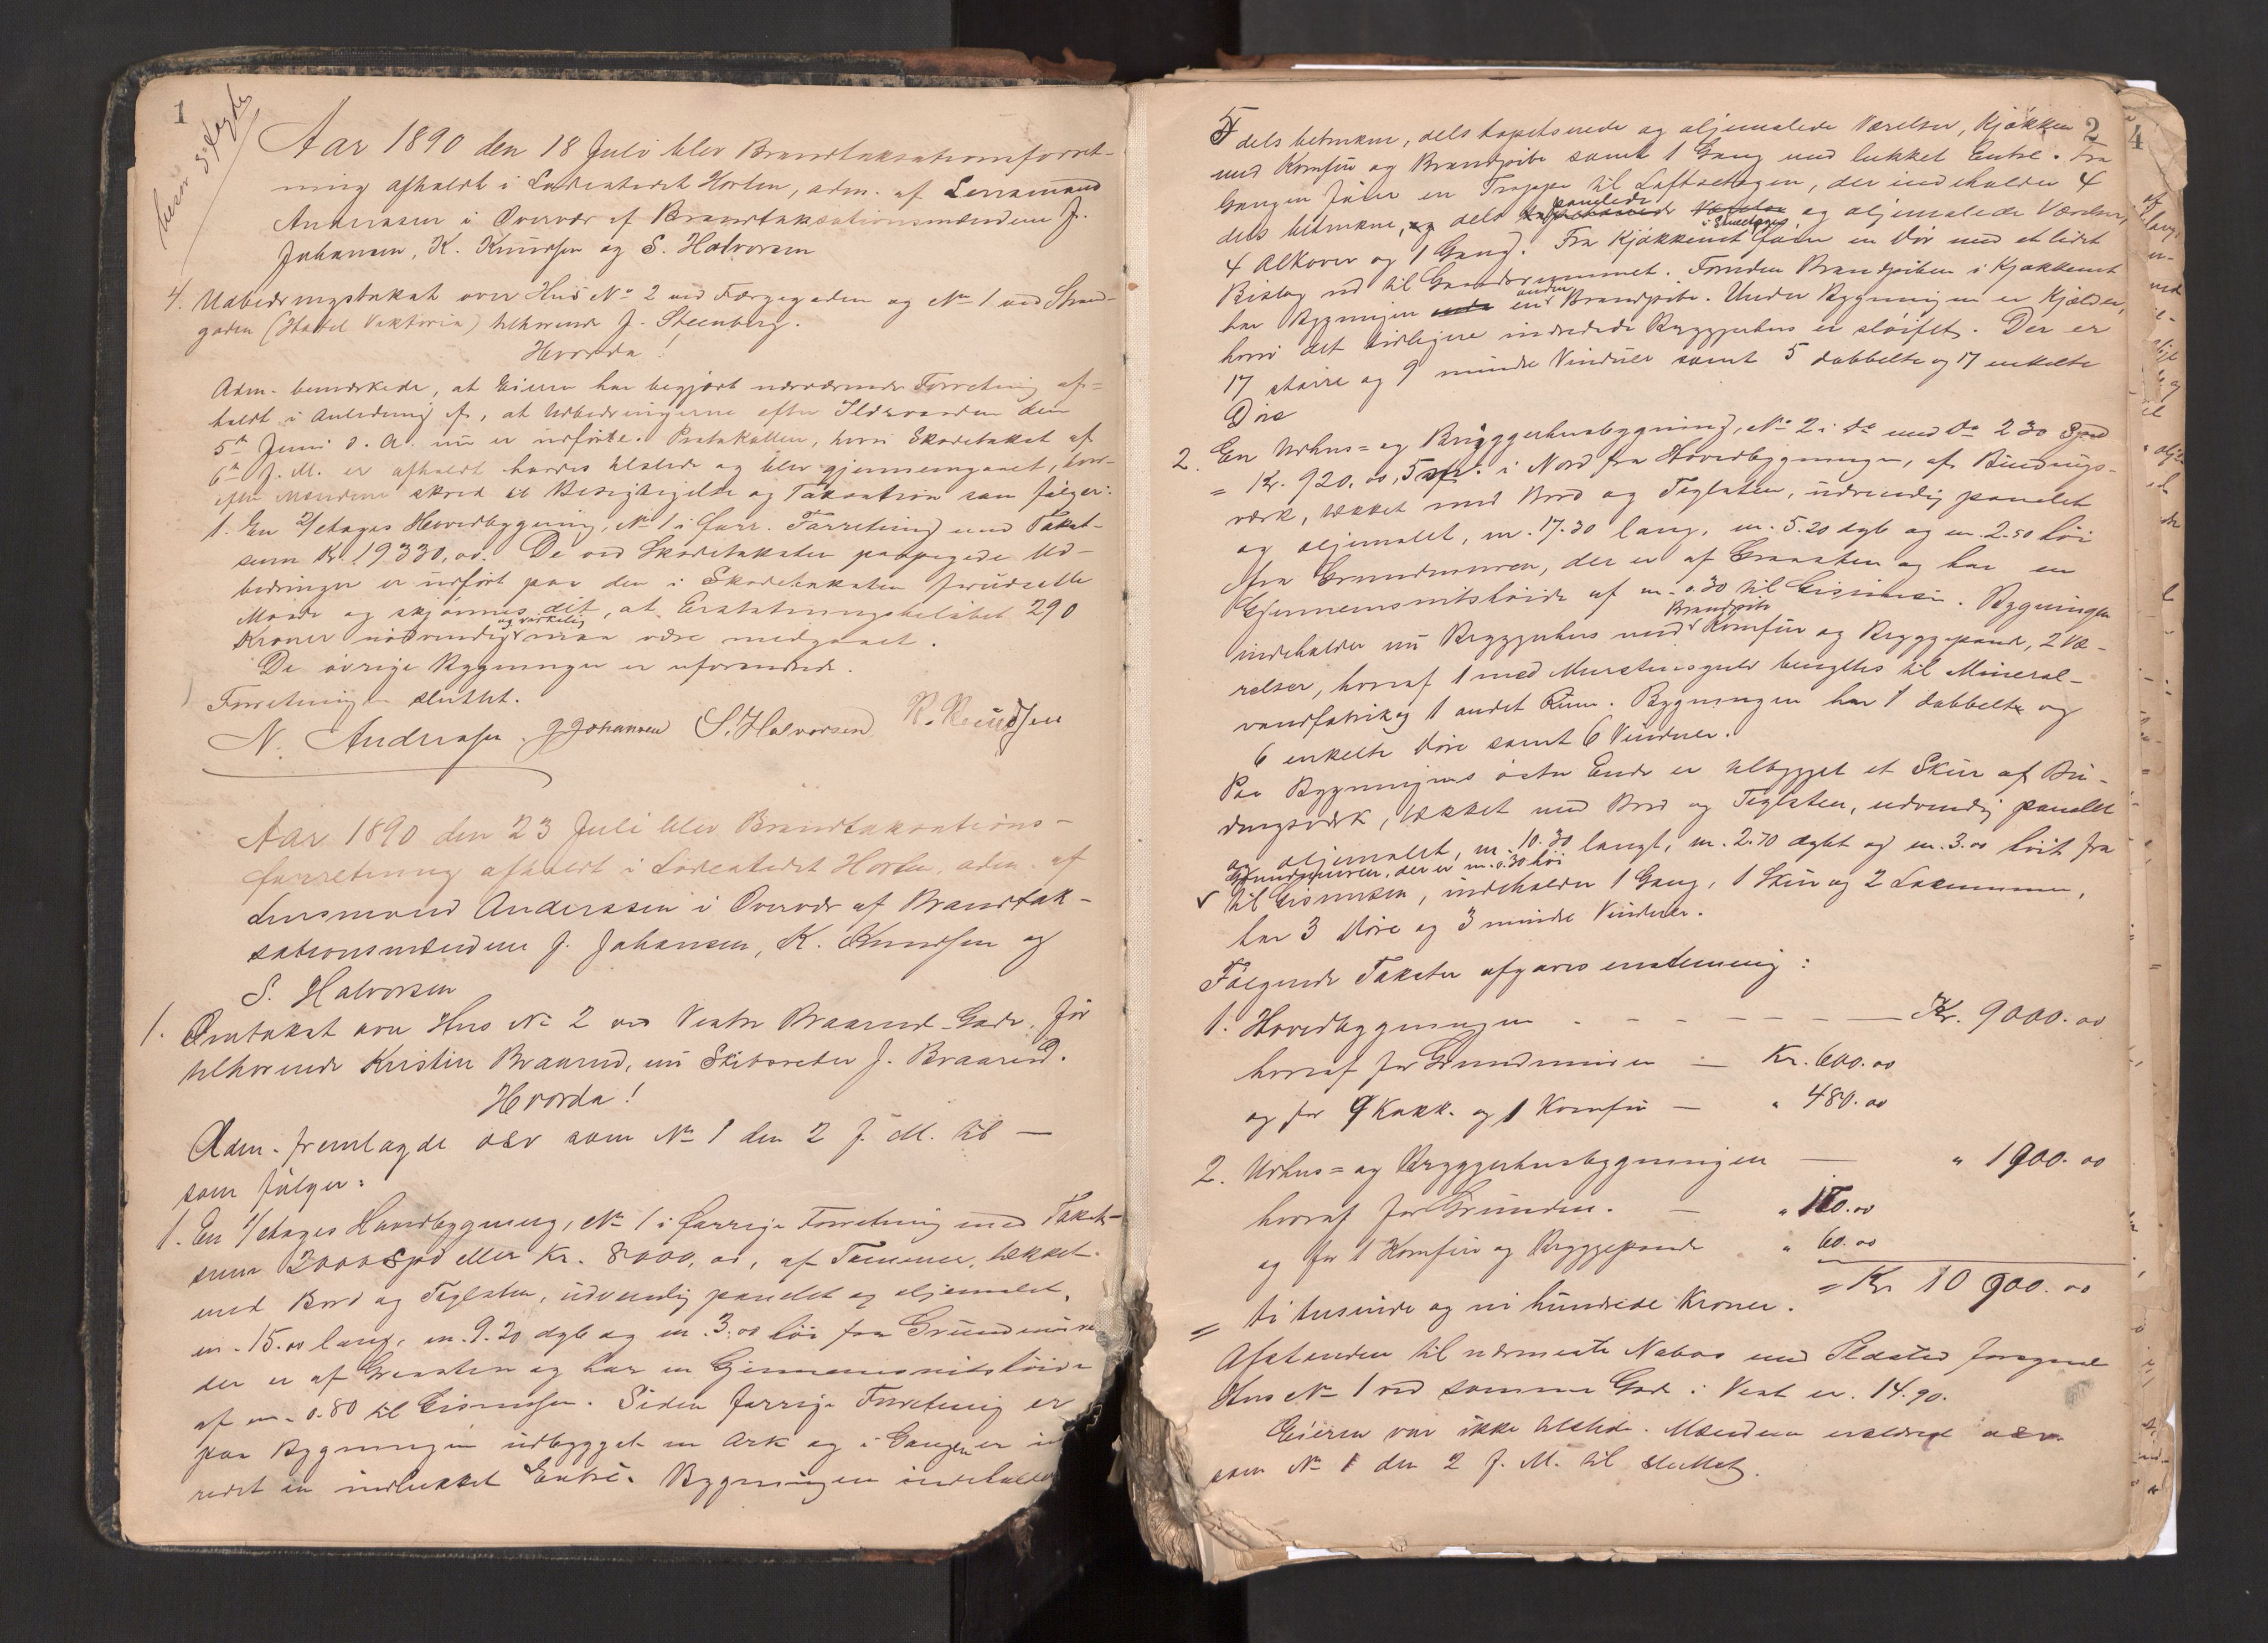 1
Aar 1890 den 18 Juli blev Brandtaksationsforret-
ning afholdt i Ladestedet Horten, adm. af Lensmand
Anderssen i Overvær af Brandtaksationsmændene J.
Johansen, K. Knudsen og S. Halvorsen
4. Udbedringstakst over Hus No 2 ved Færgegaden og No 1 ved Strand-
gaden (Hotel Viktoria) tilhørende J. Steenberg.
Hvorda!
Adm. bemærkede, at Eieren har begjært nærværende Forretning af-
holdt i Anledning af, at Udbedringerne efter Ildsvaaden den
5te Juni d. A. nu er udførte. Protokollen, hvori Skadetakst af
6te f. M. er afholdt havdes tilstede og blev gjennemgaaet, hvor-
efter Mændene skred til Besigtigelse og Taxation som følger:
1. En 2/etages Hovedbygning, No 1 i forr. Forretning med Takst-
sum Kr. 19330,00. De ved Skadetaksten paapegede Ud-
bedringer er udført paa den i Skadetaksten forudsatte
Maade og skjønnes det, at Erstatningsbeløbet 290
Kroner nødvendig og virkelig maa være medgaaet.
De øvrige Bygninger er uforandrede.
Forretningen sluttet.
N. Anderssen. J Johansen S. Halvorsen K. Knudsen
Aar 1890 den 23 Juli blev Brandtaksations-
forretning afholdt i Ladestedet Horten, adm. af
Lensmand Anderssen i Overvær af Brandtak-
sationsmændene J. Johansen, K. Knudsen og
S. Halvorsen
1. Omtakst over Hus No 2 ved Vestre Braarud Gade, før
tilhørende Kristin Braarud, nu Skibsreder J. Braarud.
Hvorda!
Adm. fremlagde osv som No 1 den 2 f. M. til —
som følger:
1. En 1/etages Hovedbygning, No 1 i forrige Forretning med Takst-
sum 2000 Spd eller Kr. 8000,00, af Tømmer, tækket
med Bord og Teglsten, udvendig panelet og oljemalet,
m. 15.00 lang, m. 9.20 dyb og m. 3.00 høi fra Grundmuren
der er af Graasten og har en Gjennemsnitshøide
af m. 0.80 til Gismusen. Siden forrige Forretning er
paa Bygningen udbygget en Ark og i Gangen er ind
redet en indlukket Entré. Bygningen indeholder
2
5 dels betrukne, dels tapetserede og oljemalede Værelser, Kjøkken
med Komfur og Brandpibe samt 1 Gang med lukket Entré. Fra
Gangen fører en Trappe til Loftsetagen, der indeholder 4
dels betrukne, dels panelede og oljemalede Værelser,
4 Alkover og 1 Gang. Fra Kjøkkenet i Stueetagen fører en Dør med et lidet
Bislag ud til Gaardsrummet. Foruden Brandpiben i Kjøkkenet
har Bygningen en anden Brandpibe. Under Bygningen er Kjælder,
hvori det tidligere indredede Bryggerhus er sløifet. Der er
17 større og 9 mindre Vinduer samt 5 dobbelte og 17 enkelte
Døre
2. En Udhus- og Bryggerhusbygning, No 2 i do med do 230 Spd
= Kr. 920.00, i Nord fra Hovedbygningen, af Bindings-
værk, tækket med Bord og Teglsten, udvendig panelet
og oljemalet, m. 17.30 lang, m. 5.20 dyb og m. 2.50 høi
fra Grundmuren, der er af Graasten og har en
Gjennemsnitshøide af m. 0.30 til Gismusen. Bygningen
indeholder nu Bryggerhus med Brandpibe Komfur og Bryggepande, 2 Væ-
relser, hvoraf 1 med Murstensgulv benyttes til Mineral-
vandfabrik og 1 andet Rum. Bygningen har 1 dobbelt og
6 enkelte Døre samt 6 Vinduer.
Paa Bygningens østre Ende er tilbygget et Skur af Bin-
dingsværk, tækket med Bord og Teglsten, udvendig panelet
og oljemalet, m. 10.30 langt, m. 2.70 dybt og m. 3.00 høit fra
Grundmuren, der er m. 0.30 høi
til Gismusen, indeholder 1 Gang, 1 Skur og 2 Lokummer,
har 3 Døre og 3 mindre Vinduer.
Følgende Takster afgaves enstemmig:
1. Hovedbygningen - - - - Kr. 9000.00
hvoraf for Grundmuren — Kr. 600.00
og for 9 Kakk. og 1 Komfur — " 480.00
2. Udhus- og Bryggerhusbygningen — " 1900.00
hvoraf for Grunden. — "
og for 1 Komfur og Bryggepande " 60.00
= Kr 10 900.00
= ti tusinde og ni hundrede Kroner.
Afstanden til nærmeste Nabos med Ildsted forsynede
Hus No 1 ved samme Gade i Vest er. 14.90.
Eieren var ikke tilstede. Mændene erklæred osv.
som No 1 den 2 f. M. til sluttet.
4